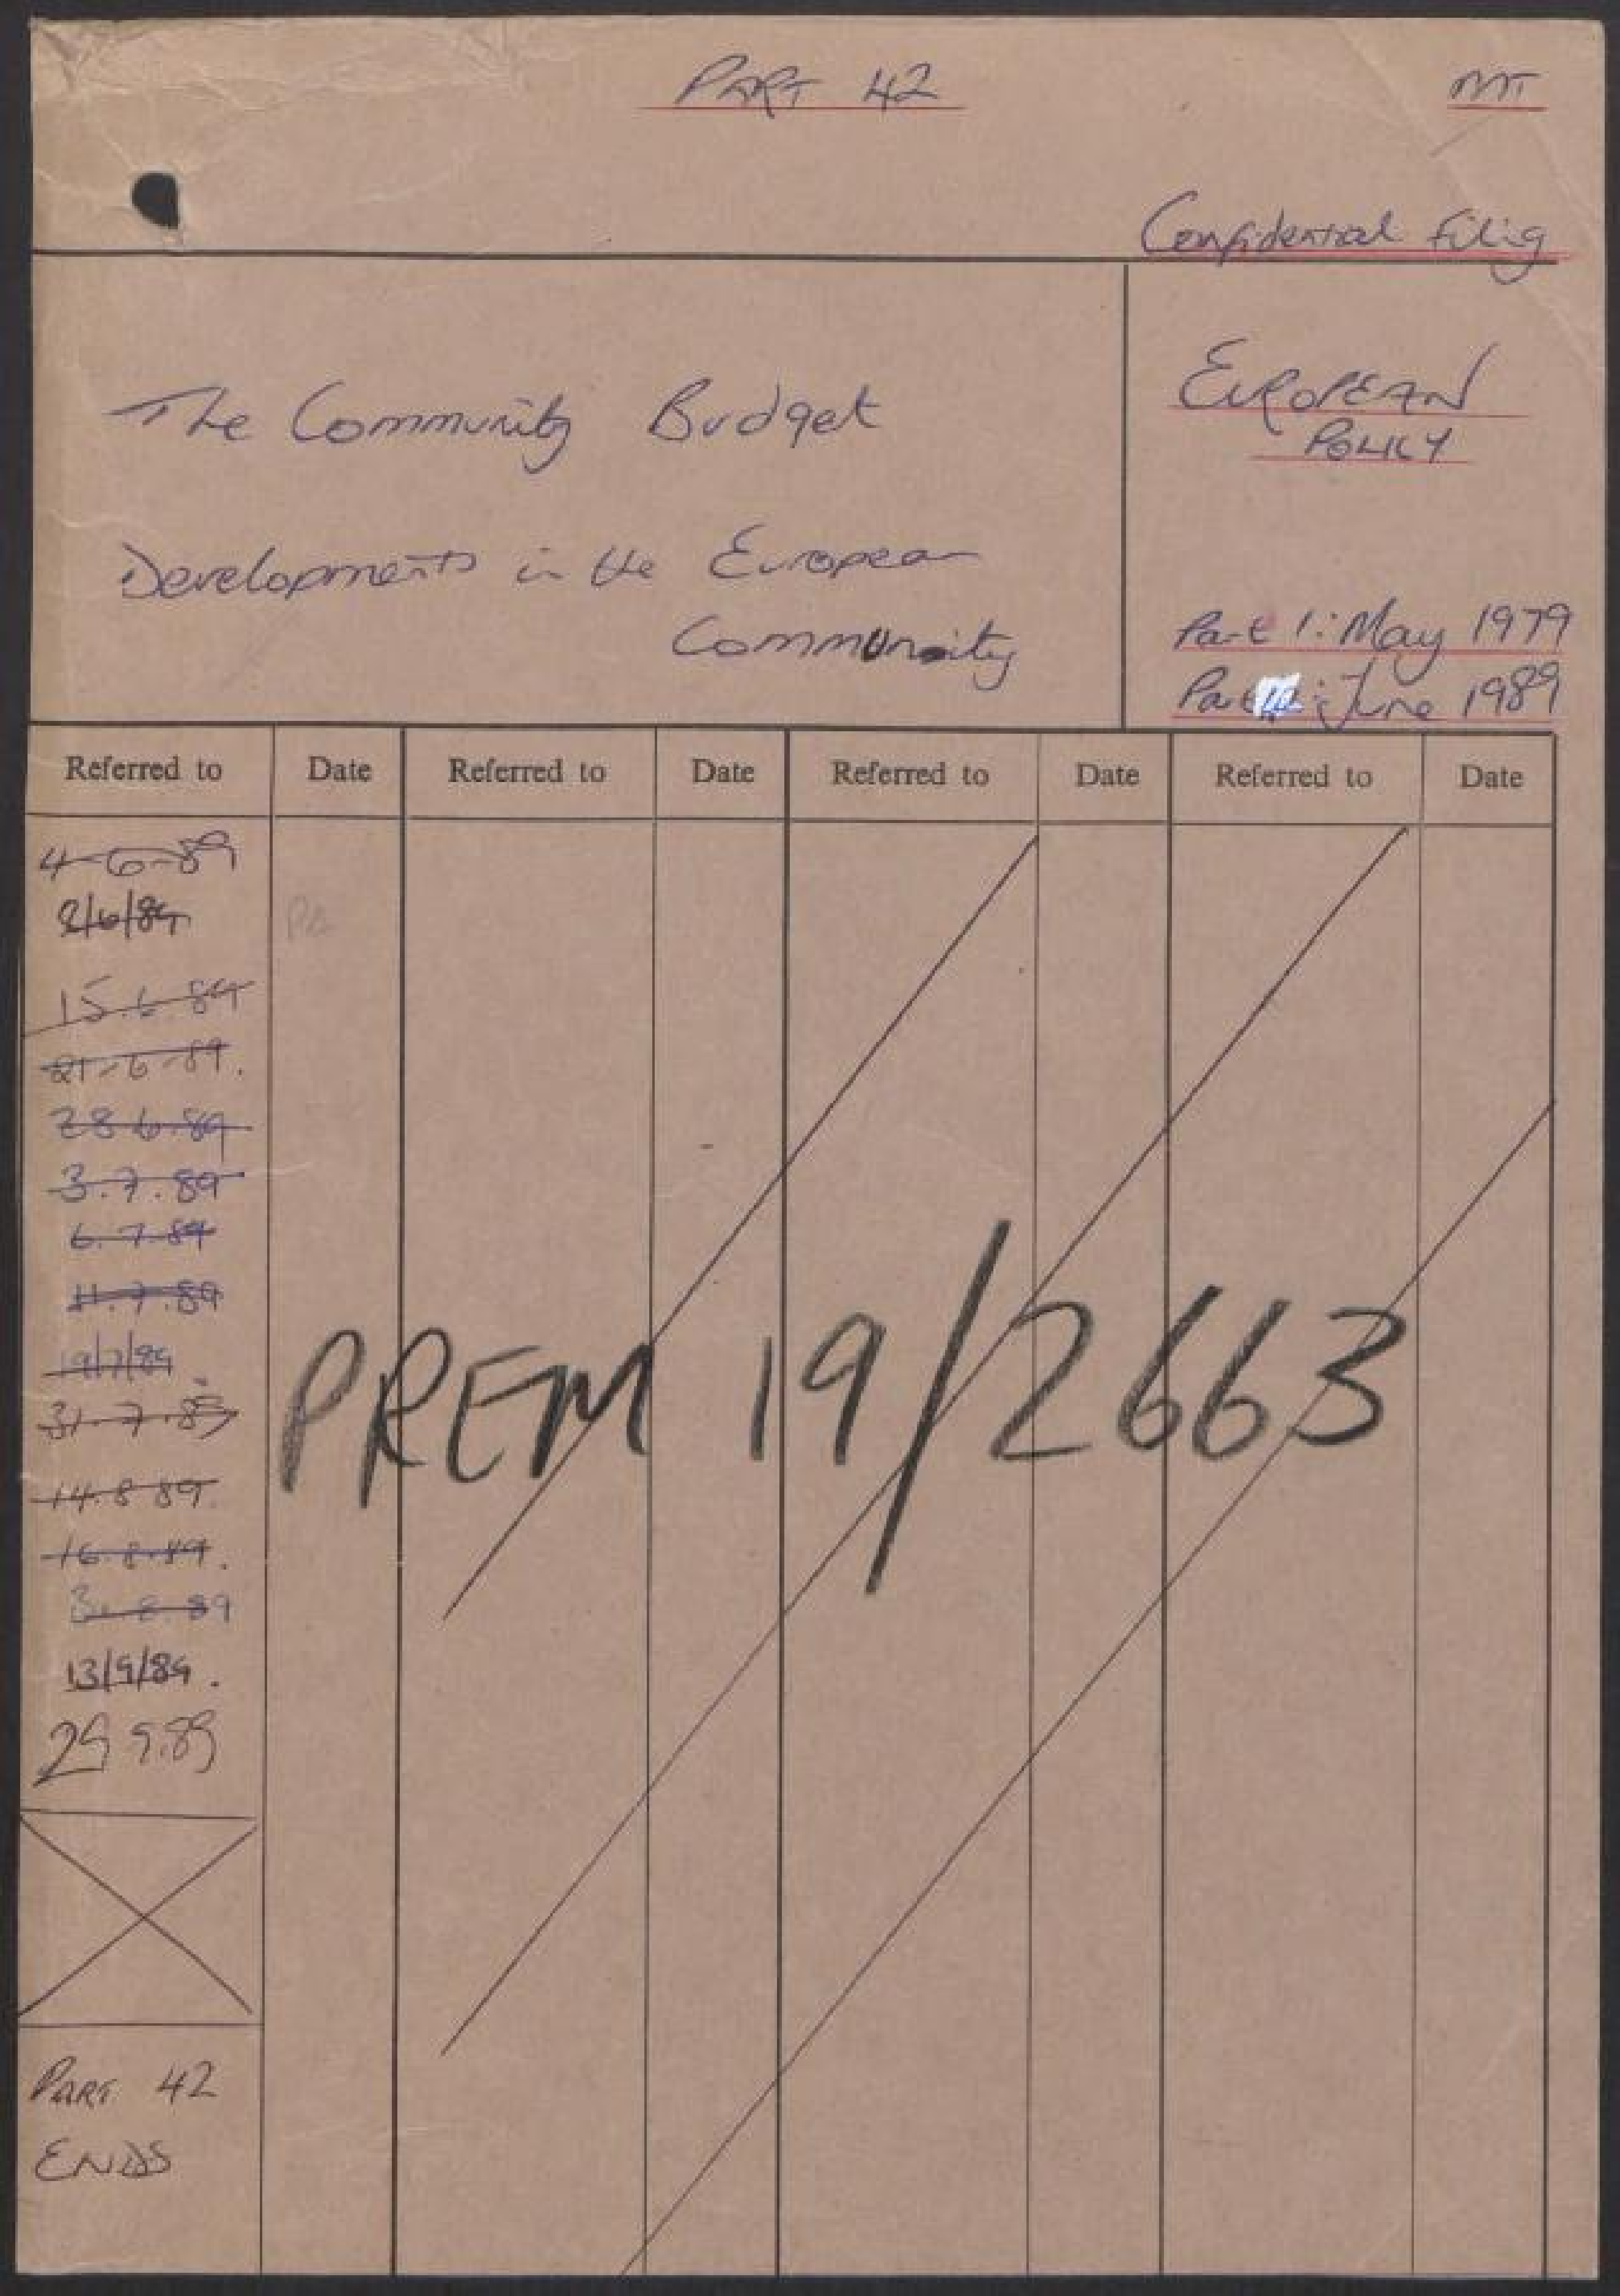 PART 42
MT
Confidential Filing
The Community Budget
Developments in the European
Community
EUROPEAN
POLICY
Part 1: May 1979
Part 42: June 1989
Referred to Date Referred to Date Referred to Date Referred to Date
4-6-89
15.6.89
21-6-89.
28.6.89
3.7.89
6.7.89
11.7.89
19/7/89
31.7.89
14.8.89.
16.8.89.
13/9/89.
29 9.89
PREM 19/2663
PART 42
ENDS